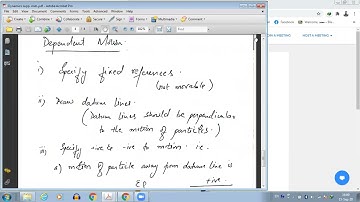 Dependent Motion
i) Specify fixed references.
(not movable)
ii) Draw datum lines.
(Datum lines should be perpendicular
to the motion of particles.)
iii) Specify +ive & -ive to motion. i.e.
a) motion of particle away from datum line is
+ive.
HOST A MEETING